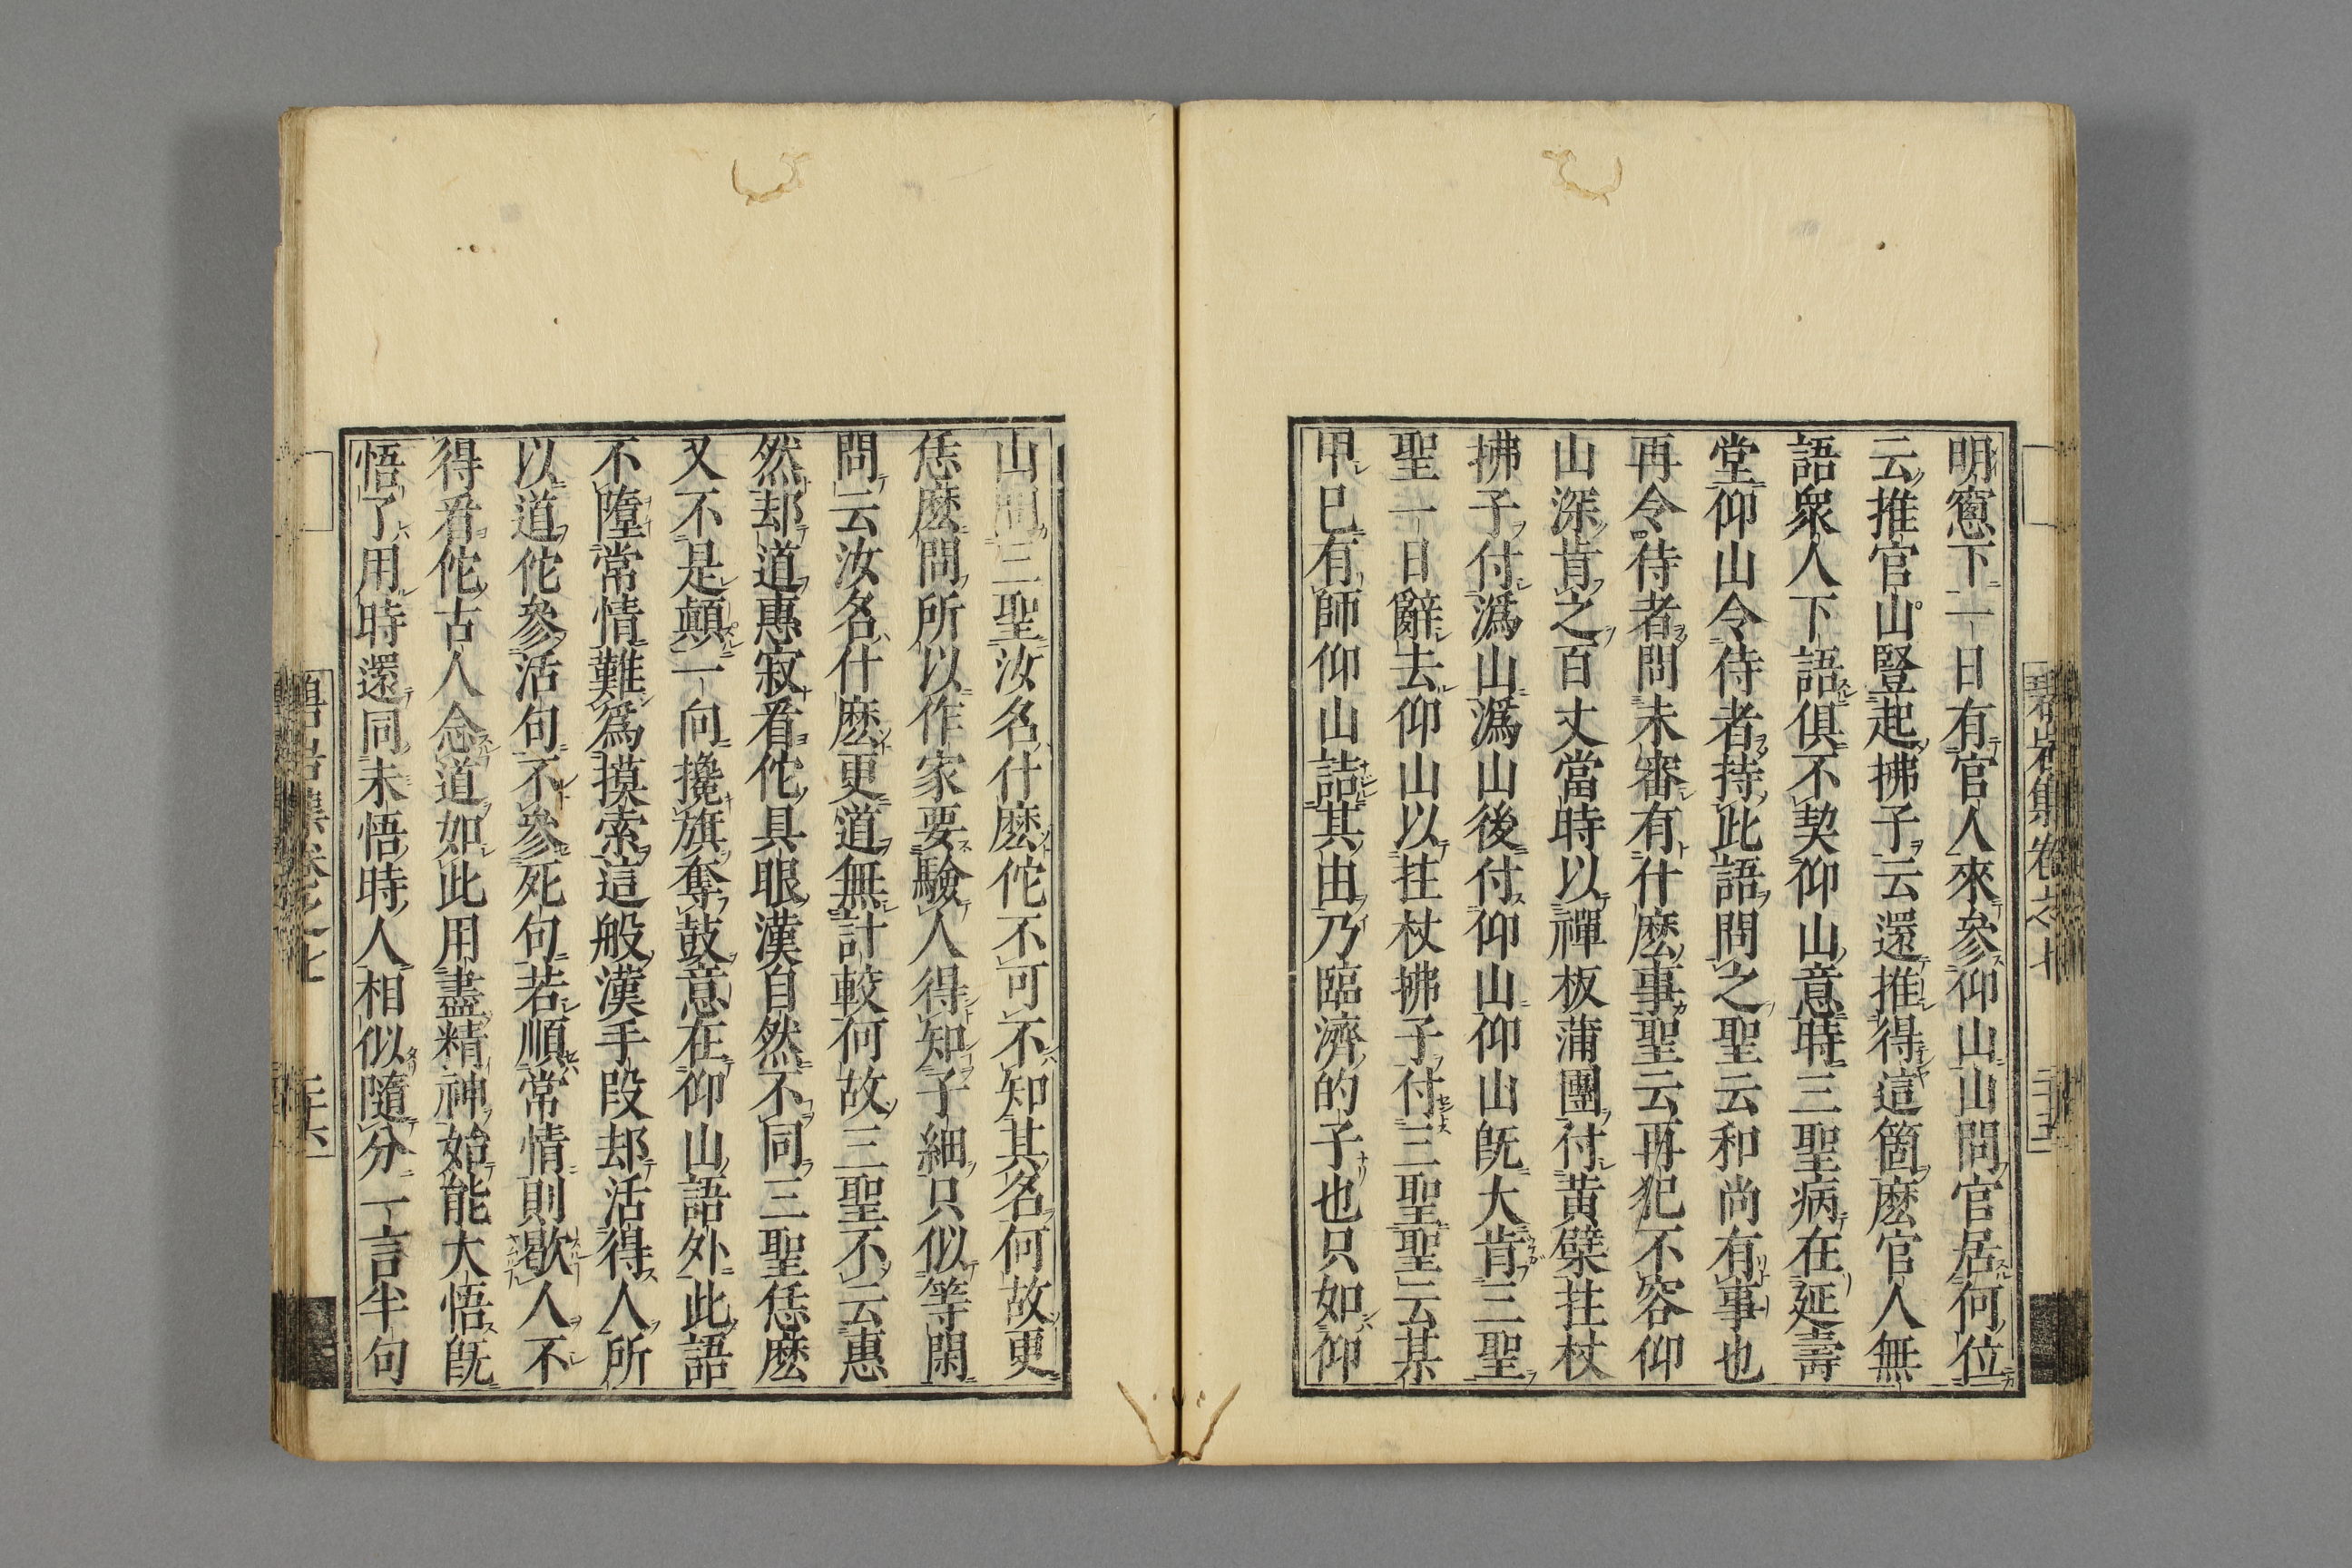 明窻下一日有官人來參仰山山問官居何位
云推官山豎起拂子云還推得這箇麽官人無
語衆人下語俱不契仰山意時三聖病在延壽
堂仰山令侍者持此語問之聖云和尚有事也
再令侍者問未審有什麽事聖云再犯不容仰
山深肯之百丈當時以禪板蒲團付黄檗拄杖
拂子付潙山潙山後付仰山仰山旣大肯三聖
聖一日辭去仰山以拄杖拂子付三聖聖云某
甲已有師仰山詰其由乃臨濟的子也只如仰
山問三聖汝名什麽佗不可不知其名何故更
恁麽問所以作家要驗人得知子細只似等閑
問云汝名什麽更道無計較何故三聖不云惠
然却道惠寂看佗具眼漢自然不同三聖恁麽
又不是顛一向攙旗奪鼓意在仰山語外此語
不墮常情難爲摸索這般漢手段却活得人所
以道佗參活句不參死句若順常情則歇人不
得看佗古人念道如此用盡精神始能大悟旣
悟了用時還同未悟時人相似隨分一言半句